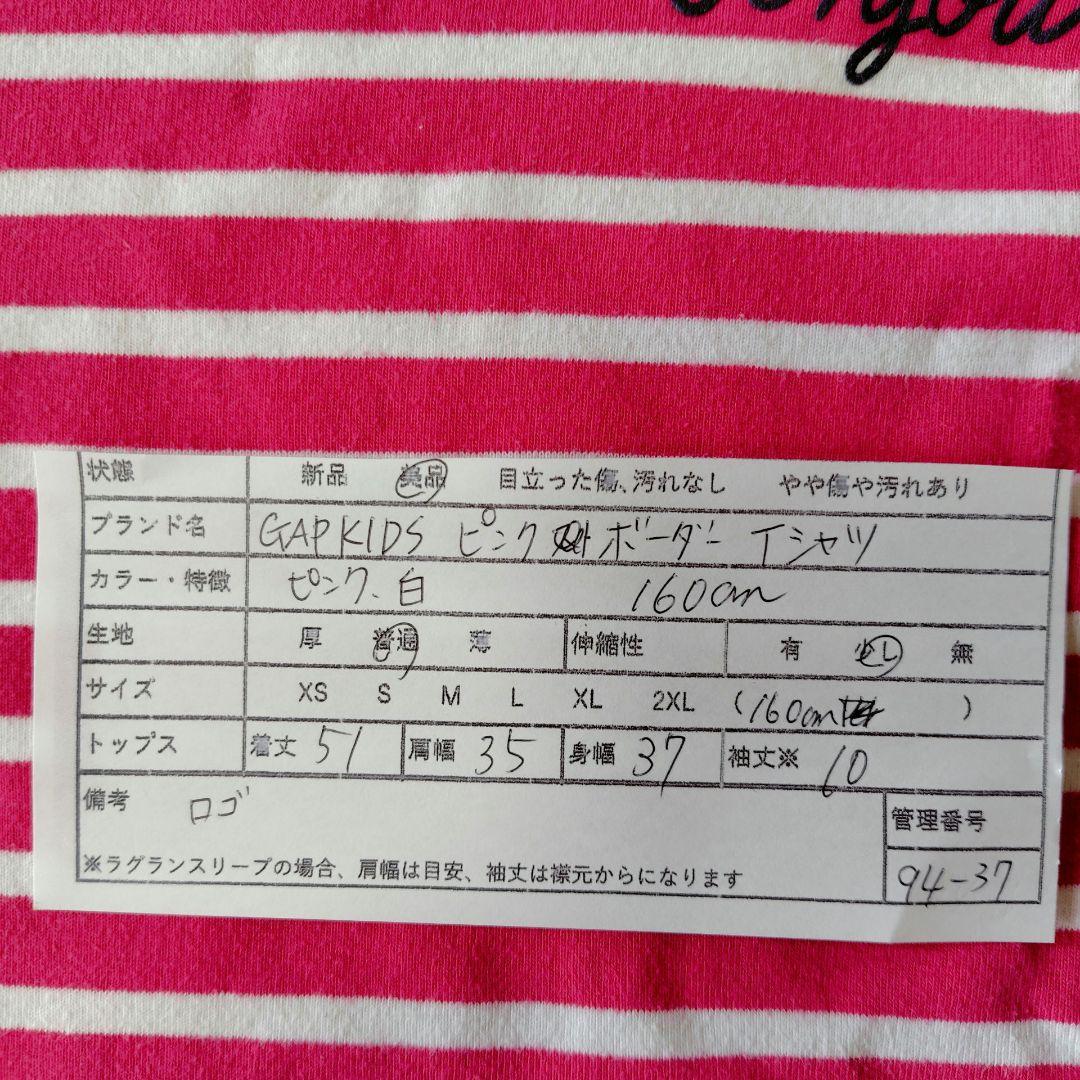 状態 新品 美品 目立った傷、汚れなし やや傷や汚れあり
ブランド名 GAP KIDS ピンク ボーダー Tシャツ
カラー・特徴 ピンク、白 160cm
生地 厚 普通 薄 伸縮性 有 少し 無
サイズ XS S M L XL 2XL (160cm )
トップス 着丈 51 肩幅 35 身幅 37 袖丈※ 10
備考 ロゴ
管理番号
※ラグランスリーブの場合、肩幅は目安、袖丈は襟元からになります
94-37